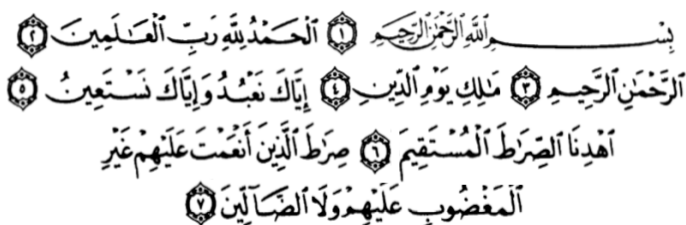 بِسْمِ اللَّهِ الرَّحْمَٰنِ الرَّحِيمِ ١ الْحَمْدُ لِلَّهِ رَبِّ الْعَالَمِينَ ٢
الرَّحْمَٰنِ الرَّحِيمِ ٣ مَالِكِ يَوْمِ الدِّينِ ٤ إِيَّاكَ نَعْبُدُ وَإِيَّاكَ نَسْتَعِينُ ٥
اهْدِنَا الصِّرَاطَ الْمُسْتَقِيمَ ٦ صِرَاطَ الَّذِينَ أَنْعَمْتَ عَلَيْهِمْ غَيْرِ
الْمَغْضُوبِ عَلَيْهِمْ وَلَا الضَّالِّينَ ٧